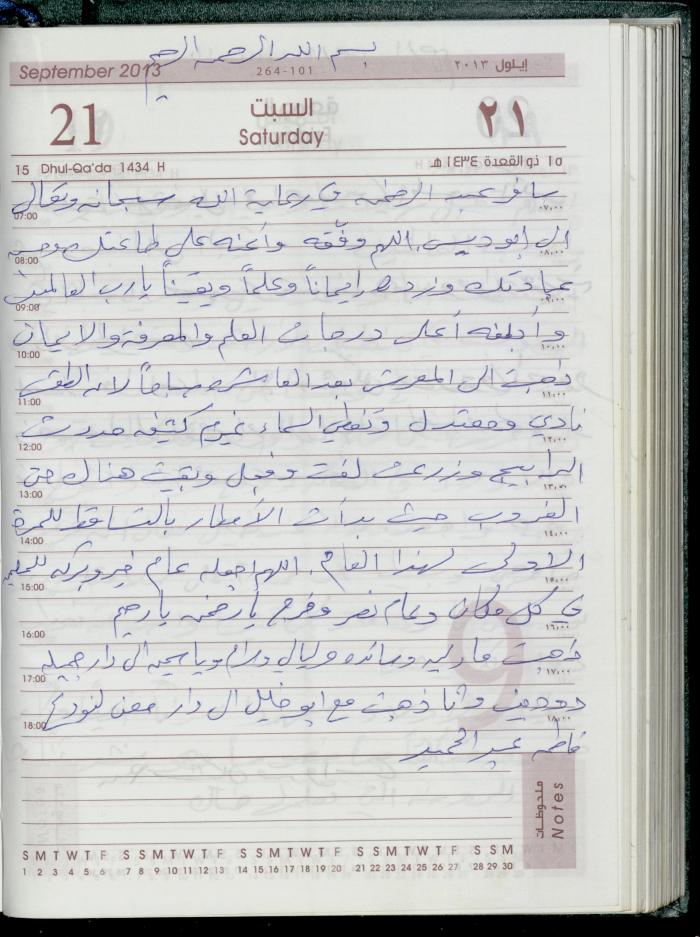 بسم الله الرحمن الرحيم
September 2013 264-101 إيلول ٢٠١٣
21 السبت ٢١
Saturday
15 Dhul-Qa'da 1434 H ١٥ ذو القعدة ١٤٣٤ هـ
سافر عبد الرحمن في رعاية الله سبحانه وتعالى
07:00 ٠٧,٠٠
الى ابو ديس، اللهم وفقه وأعنه على طاعتك وحسن
08:00 ٠٨,٠٠
عبادتك وزده إيماناً وعلماً ويقيناً يا رب العالمين
09:00 ٠٩,٠٠
وأبلغه أعلى درجات العلم والمعرفة والايمان
10:00 ١٠,٠٠
ذهبت الى المعرش بعد العاشره صباحاً لان الطقس
11:00 ١١,٠٠
نادي ومعتدل وتغطي السماء غيوم كثيفه مددت
12:00 ١٢,٠٠
البرابيج وزرعت لفت وفجل وبقيت هناك حتى
13:00 ١٣,٠٠
الغروب حيث بدأت الأمطار بالتساقط للمرة
14:00 ١٤,٠٠
الاولى لهذا العام. اللهم اجعله عام خير وبركه للمسلمين
15:00 ١٥,٠٠
في كل مكان وعام نصر وفرج يا رحمن يا رحيم
16:00 ١٦,٠٠
ذهبت وليالي ومرام وياسمين الى دار جميله
17:00 ١٧,٠٠
وانا ذهبت مع ابو خليل الى دار معن لنودع
18:00 ١٨,٠٠
فاطمه عبد الحميد
9
ملحوظات
Notes
S M T W T F S S M T W T F S S M T W T F S S M T W T F S S M
1 2 3 4 5 6 7 8 9 10 11 12 13 14 15 16 17 18 19 20 21 22 23 24 25 26 27 28 29 30